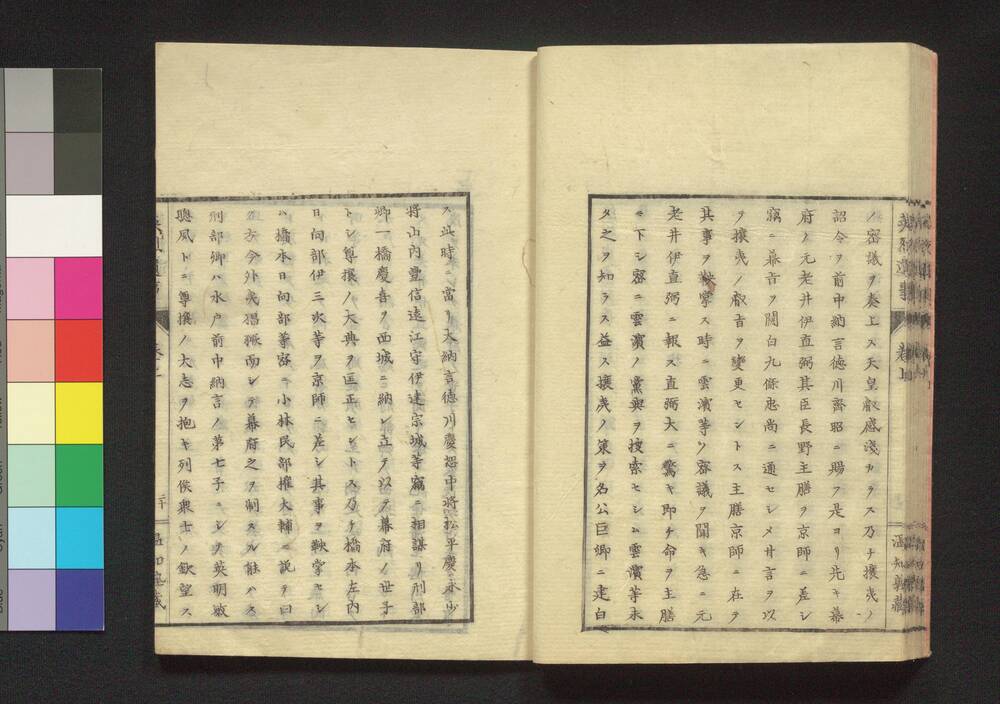 ノ密議ヲ奏上ス天皇叡感淺カラス乃チ攘夷ノ
詔令ヲ前中納言德川齊昭ニ賜フ是ヨリ先キ幕
府ノ元老井伊直弼其臣長野主膳ヲ京師ニ差シ
竊ニ幕旨ヲ關白九條忠尚ニ通セシメ甘言ヲ以
ヲ攘夷ノ叡旨ヲ變更セントス主膳京師ニ在ヲ
其事ヲ鞅掌ス時ニ雲濱等ノ密議ヲ聞キ急ニ元
老井伊直弼ニ報ス直弼大ニ驚キ即チ命ヲ主膳
ニ下シ密ニ雲濱ノ黨與ヲ捜索セシム雲濱等未
タ之ヲ知ラス益ス攘夷ノ策ヲ名公巨卿ニ建白
ス此時ニ當リ大納言德川慶恕中將松平慶永少
將山内豐信遠江守伊達宗城等竊ニ相謀リ刑部
卿一橋慶喜ヲ西城ニ納レ立テ以テ幕府ノ世子
トシ尊攘ノ大典ヲ匡正セントス乃チ橋本左内
日向部伊三次等ヲ京師ニ差シ其事ヲ鞅掌セシ
ム橋本日向部等密ニ小林民部權大輔ニ説テ曰
ク方今外夷猖獗而シテ幕府之ヲ制スル能ハス
刑部卿ハ水戸前中納言ノ第七子ニシテ英明敏
聰夙トニ尊攘ノ大志ヲ抱キ列侯衆士ノ欽望ス